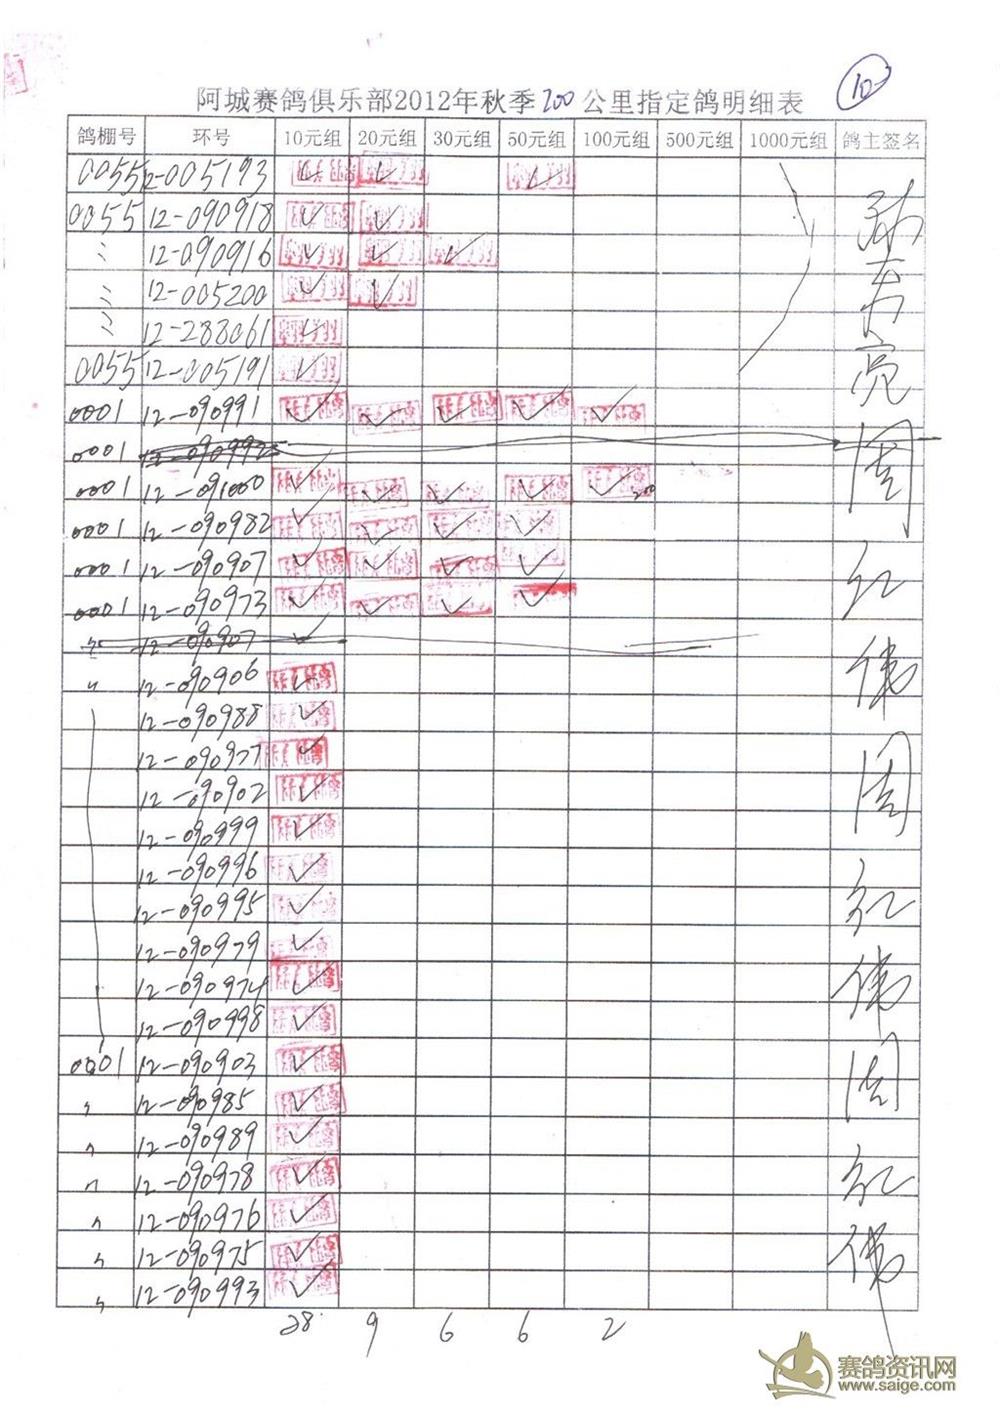 10
阿城赛鸽俱乐部2012年秋季200公里指定鸽明细表
鸽棚号 环号 10元组 20元组 30元组 50元组 100元组 500元组 1000元组 鸽主签名
0055 12-005193 ✓ ✓ ✓
0055 12-090918 ✓ ✓
〃 12-090916 ✓ ✓ ✓
〃 12-005200 ✓ ✓
〃 12-288061 ✓
0055 12-005191 ✓
0001 12-090991 ✓ ✓ ✓ ✓ ✓
0001 12-090992
0001 12-091000 ✓ ✓ ✓ ✓ ✓ 200
0001 12-090982 ✓ ✓ ✓ ✓
0001 12-090907 ✓ ✓ ✓ ✓
0001 12-090973 ✓ ✓ ✓ ✓
〃 12-090907 ✓
〃 12-090906 ✓
12-090988 ✓
12-090977 ✓
12-090902 ✓
12-090999 ✓
12-090996 ✓
12-090995 ✓
12-090979 ✓
12-090974 ✓
12-090998 ✓
0001 12-090903 ✓
〃 12-090985 ✓
〃 12-090989 ✓
〃 12-090978 ✓
〃 12-090976 ✓
〃 12-090975 ✓
〃 12-090993 ✓
周红伟
周红伟
周红伟
28 9 6 6 2
赛鸽资讯网
www.saige.com